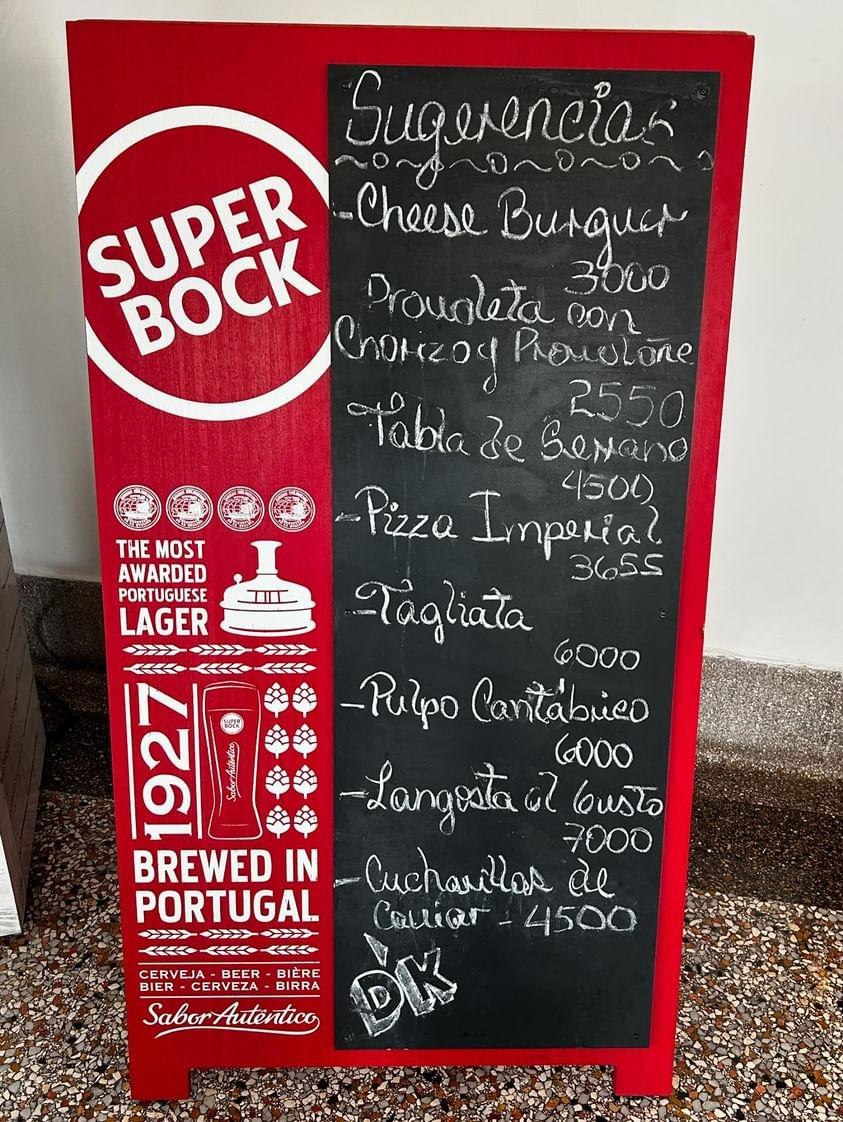 SUPER
BOCK
THE MOST
AWARDED
PORTUGUESE
LAGER
1927
SUPER
BOCK
Sabor Autêntico
BREWED IN
PORTUGAL
CERVEJA - BEER - BIÈRE
BIER - CERVEZA - BIRRA
Sabor Autêntico
Sugerencias
-Cheese Burguer
3000
Provoleta con
Chorizo y Provolone
2550
Tabla de Serrano
4500
-Pizza Imperial
3655
-Tagliata
6000
-Pulpo Cantábrico
6000
-Langosta al Gusto
7000
-Cucharillas de
Caviar - 4500
DK